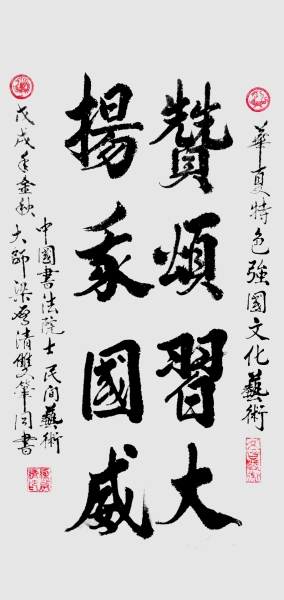 華夏特色強國文化藝術
贊頌習大
揚我國威
戊戌年金秋
中國書法院士民间藝術
大師梁啓清雙筆同書